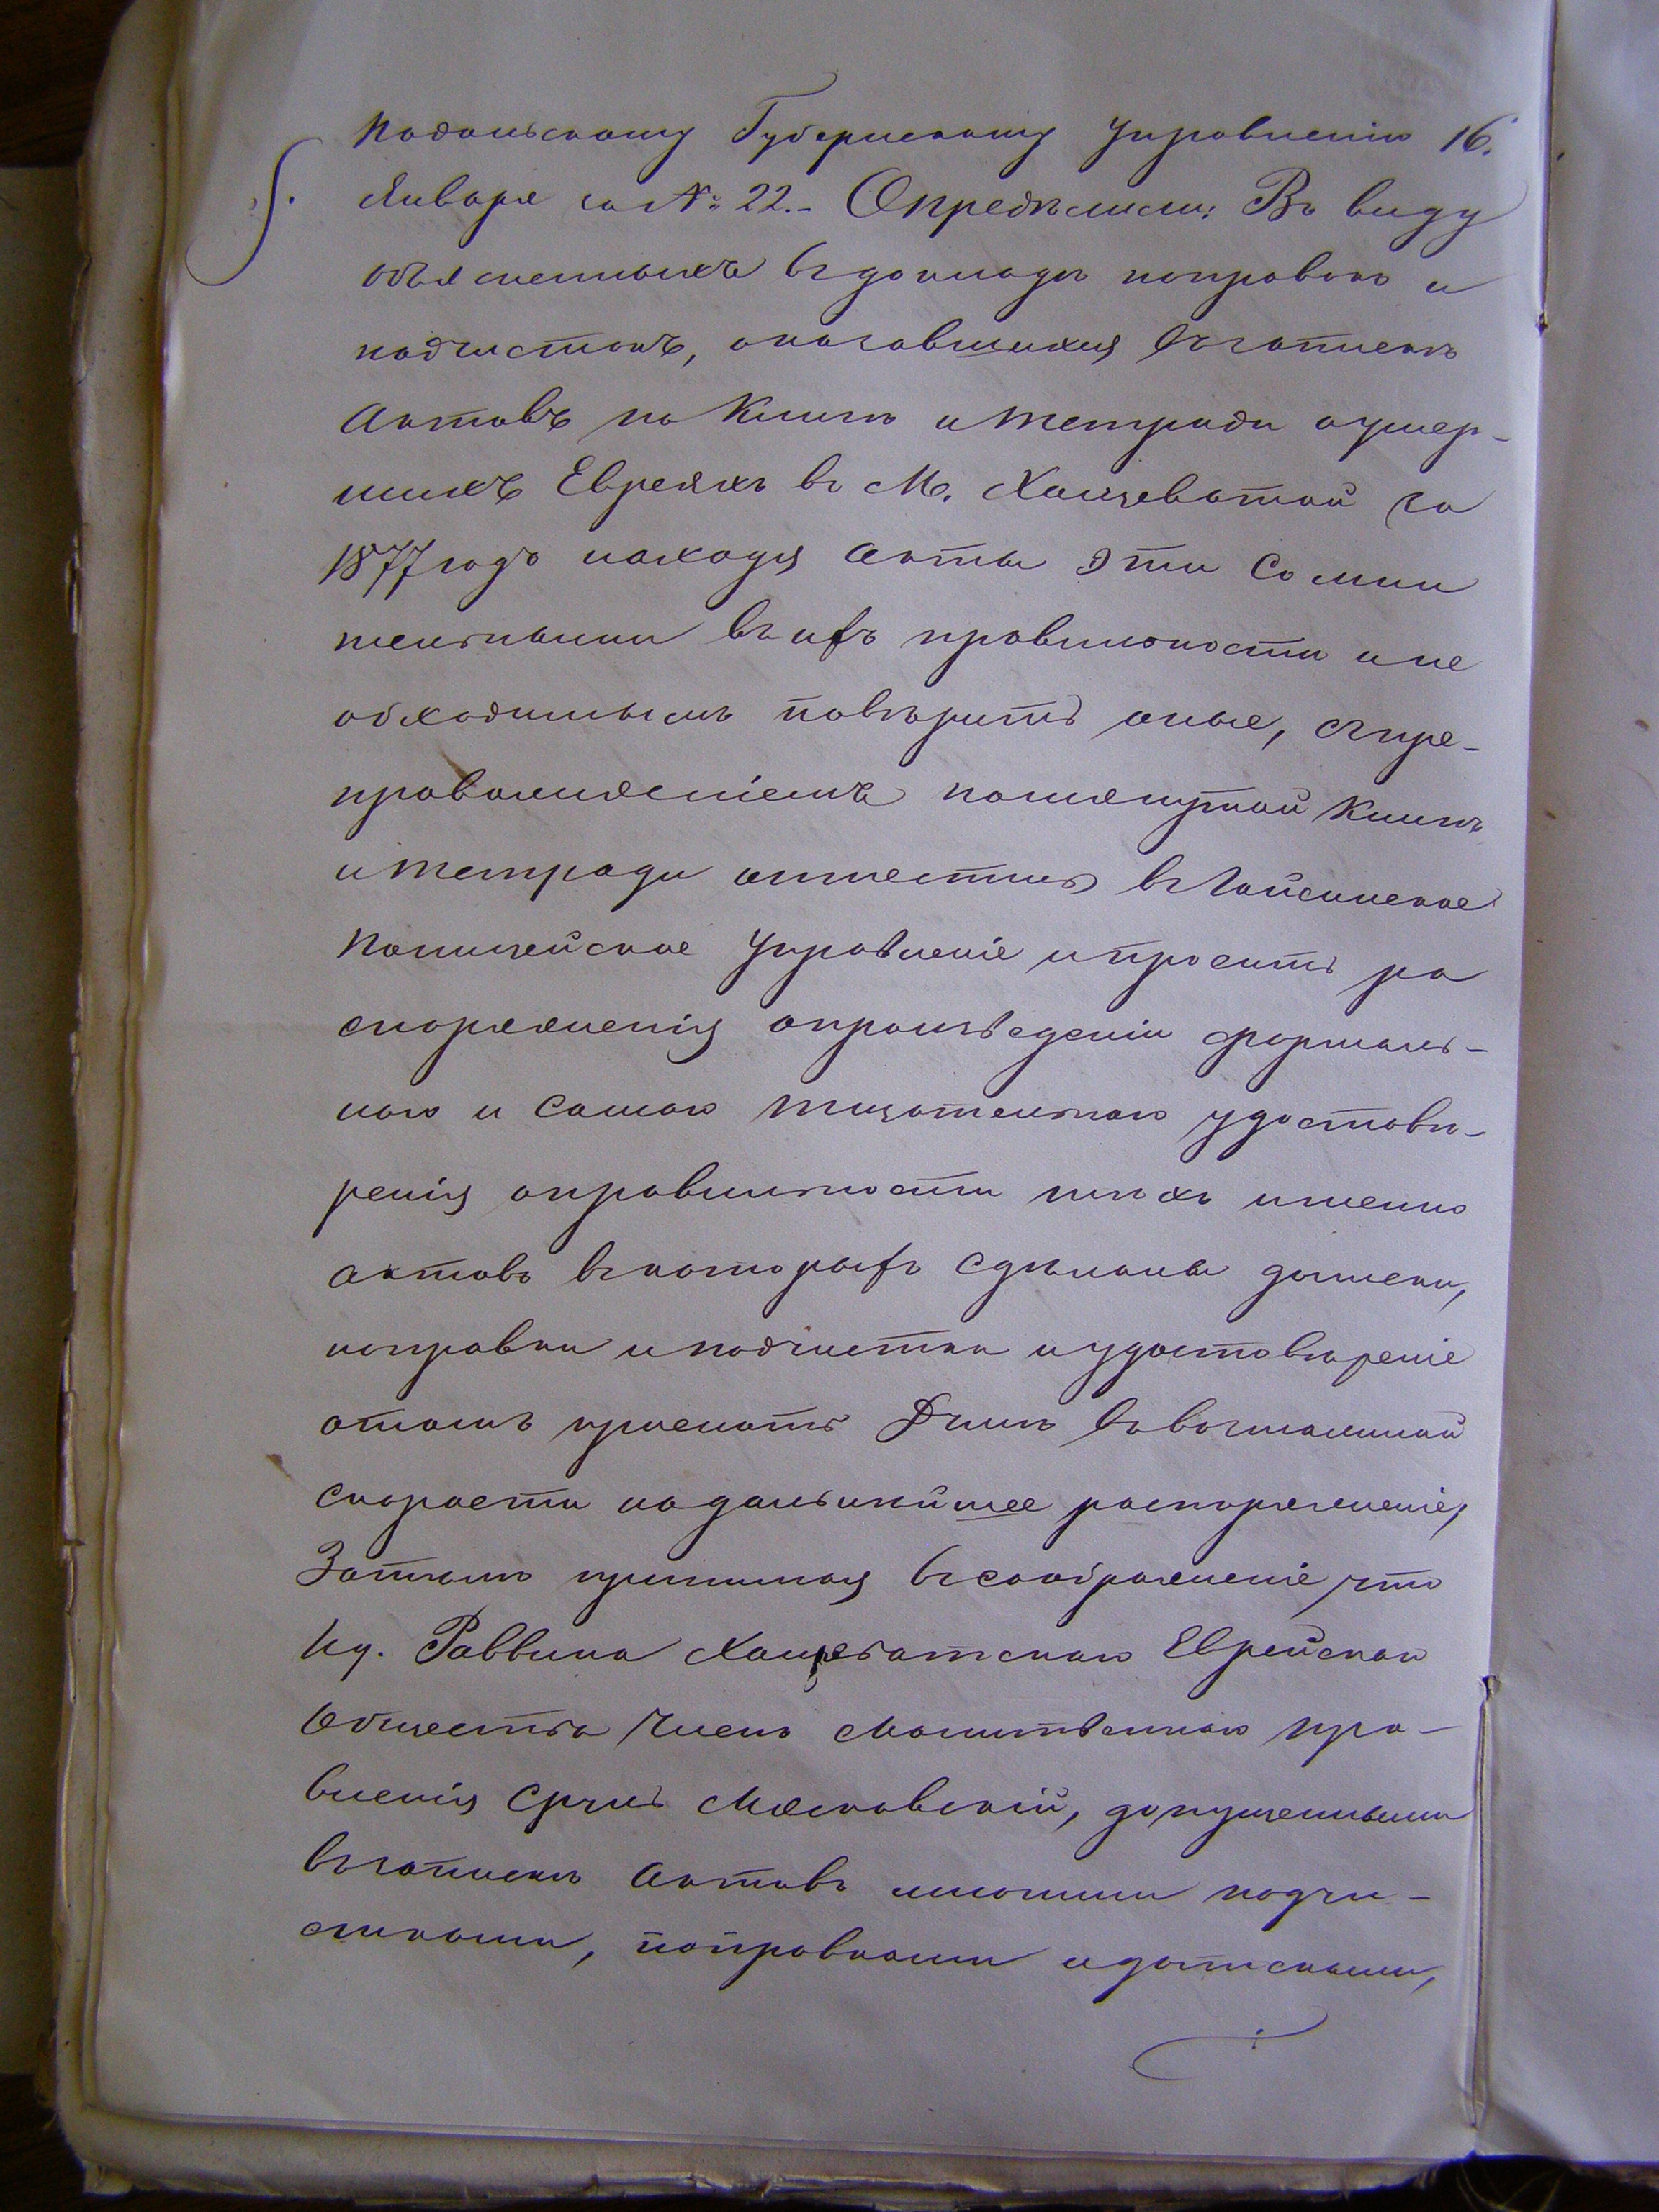 Подольскому Губернскому Управленію 16.
Января за № 22.- Опредѣлили: Въ виду
объясненныхъ въ докладѣ поправокъ и
подчистокъ, оказавшихся въ записяхъ
Актовъ по Книгѣ и тетради о умер-
шихъ Евреяхъ въ М. Хащеватой за
1877 годъ находя акты эти сомни
тельными въ ихъ правильности и не
обходимымъ повѣрить оные, съ пре-
провожденіемъ помянутой Книги
и тетради отнестись въ Гайсинское
Полицейское Управленіе и просить ра
споряженія о произведеніи формаль-
наго и самаго тщательнаго удостовѣ-
ренія о правильности тѣхъ именно
актовъ въ которыхъ сдѣланы дописки,
поправки и подчистки и удостовѣреніе
о томъ прислать Думѣ въ возможной
скорости на дальнѣйшее распоряженіе,
Затѣмъ принимая въ соображеніе, что
Ид. Раввина Хащеватскаго Еврейскаго
Общества Членъ Молитвеннаго пра-
вленія Сруль Мясковскій, допущенными
въ записяхъ Актовъ многими подчи-
стками, поправками и дописками,